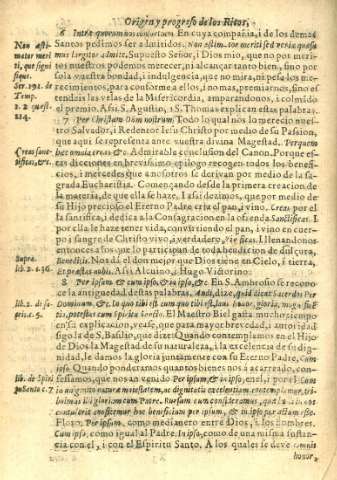 Origen y progreso de los Ritos,
6 Intra quorum nos consortium. En cuya compañia, i de los demas
Santos pedimos ser admitidos. Non æstim- tor meriti sed veniæ quæsu
mus largitor admitte. Supuesto Señor, i Dios mio, que no por meri-
tos nuestros podemos merecer, ni alcançar tanto bien, sino por
sola vuestra bondad, i indulgencia, que no mira, ni pesa los me-
recimientos, para conforme a ellos, i no mas, premiarnos, sino es-
tendeis las velas de la Misericordia, amparandonos, i colmido
el premio. Assi S. Agustin, i S. Thomas explican estas palabras.
7 Per Christum Dom nostrum. Todo lo qual nos lo merecio nues-
tro Salvador, i Redentor Iesu Christo por medio de su Passion,
que aqui se representa ante vuestra divina Magestad. Per quem
hæc omnia creas & c. Admirable conclusion del Canon. Porque es-
tas dicciones en brevissimo epilogo recogen todos los benefi-
cios, i mercedes que a nosotros se derivan por medio de la sa-
grada Eucharistia. Començando desde la primera creacion de
la materia, de que ella se haze, i assi dezimos, que por medio de
su Hijo precioso el Eterno Padre cria el pan, i vino. Creas por el
la santifica, i dedica a la Consagracion en la ofrenda Sanctificas. I
por ella le haze tener vida, convirtiendo el pan, i vino en cuer-
po i sangre de Christo vivo, averdadero, Vivificas. I llenandonos
entonces a los que lo participan de toda bendicion de dulçura,
Benedicis. Nos dà el don mejor que Dios tiene en Cielo, i tierra,
Et præstas nobis. Assi Alcuino, i Hugo Victorino.
8 Per ipsum & cum ipso, & in ipso, & c. En S. Ambrosio se reco-
ce la antiguedad destas palabras. Audi, dize, quid dicat Sacerdos Per
Dominum &, In quo tibi est cum quo tibi est, laus honor, gloria, magnificen
tia, potestas cum Spiritu Sancto. El Maestro Biel gasta mucho tiempo
en su explicacion, vease, que para mayor brevedad, i autoridad
sigo la de S. Basilio, que dize: Quando contemplamos en el Hijo
de Dios la Magestad de su naturaleza, i la excelencia de su dig-
nidad, le damos la gloria juntamente con su Eterno Padre, Cum
ipso. Quando ponderamos quantos bienes nos à acarreado, con-
fessamos, que nos an venido Per ipsum, & in ipso, en el, i por el. Cum
in unigenito naturæ majestatem, ac dignitatis excellentiam contemplamur, tri-
buimus illi gloriam cum Patre. Rursum cum consideramus, quæ in nos
contulerit confitemur hoc beneficium per ipsum, & in ipso
Floro. Per ipsum, como medianero entre Dios, i los hombres.
Cum ipso, como igual al Padre. In ipso, como de una misma sustan-
cia con el, i con el Espiritu Santo. A los quales se deve
honor,
Non æsti-
mator meri
ti, que signi
fique.
Ser. 191. de
Temp.
2. 2 quæst.
Creas sanc-
tificas, &c.
Supra.
lib. 2. c. 36.
lib. 5. de sa-
cris. c. 5.
lib. de Spiri
tu Sancto. c. 7